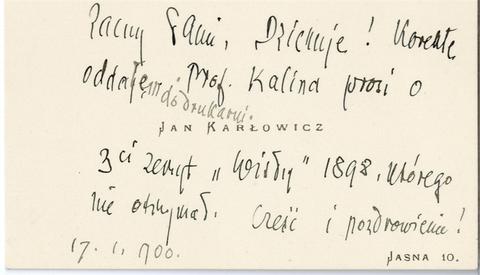 Zacny Panie, Dziękuję! Korektę
oddałem do drukarni. Prof. Kalina prosi o
JAN KARŁOWICZ
3ci zeszyt „Wisły" 1898, którego
nie otrzymał. Cześć i pozdrowienie!
17. 1. 900.
JASNA 10.